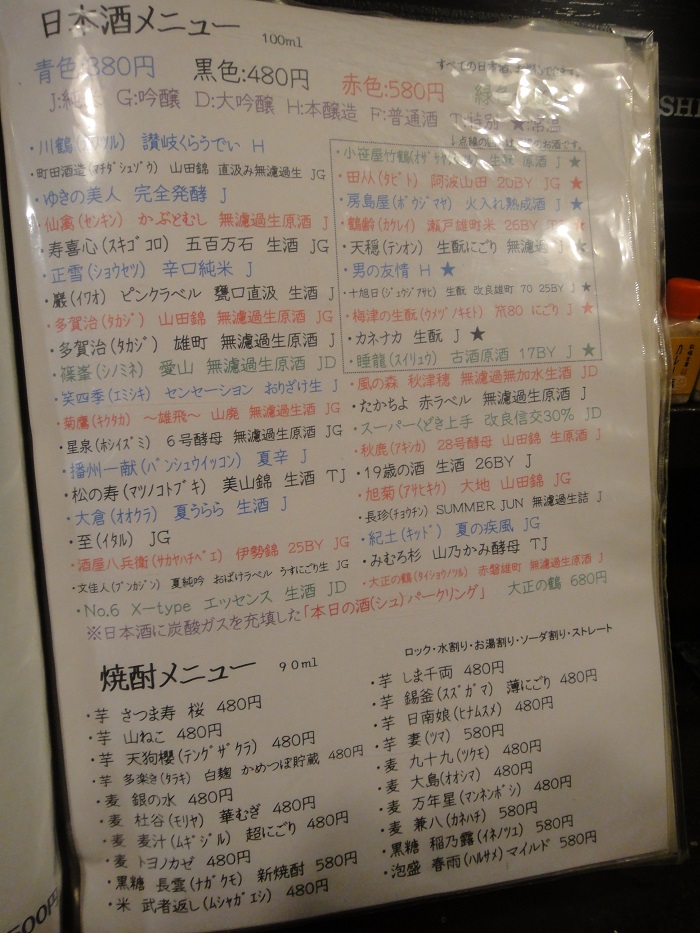 日本酒メニュー 100ml
青色:380円 黒色:480円 赤色:580円 緑色
すべての日本酒
J:純米 G:吟醸 D:大吟醸 H:本醸造 F:普通酒 T:特別 ★常温
・川鶴(カワツル) 讃岐くらうでぃ H
・町田酒造(マチダシュゾウ) 山田錦 直汲み無濾過生 JG
・ゆきの美人 完全発酵 J
・仙禽(センキン) かぶとむし 無濾過生原酒 J
・寿喜心(スキゴコロ) 五百万石 生酒 JG
・正雪(ショウセツ) 辛口純米 J
・巖(イワオ) ピンクラベル 甕口直汲 生酒 J
・多賀治(タカジ) 山田錦 無濾過生原酒 JG
・多賀治(タカジ) 雄町 無濾過生原酒 J
・篠峯(シノミネ) 愛山 無濾過生原酒 JD
・笑四季(エミシキ) センセーション おりざけ生 J
・菊鷹(キクタカ) ～雄飛～ 山廃 無濾過生酒 JG
・星泉(ホシイズミ) 6号酵母 無濾過生原酒 JG
・播州一献(バンシュウイッコン) 夏辛 J
・松の寿(マツノコトブキ) 美山錦 生酒 TJ
・大倉(オオクラ) 夏うらら 生酒 J
・至(イタル) JG
・酒屋八兵衛(サカヤハチベエ) 伊勢錦 25BY JG
・文佳人(ブンカジン) 夏純吟 おばけラベル うすにごり生 JG
・No.6 X-type エッセンス 生酒 JD
のお酒です。
・小笹屋竹鶴 生酛 原酒 J ★
・田人(タビト) 阿波山田 26BY JG ★
・房島屋(ボウジマヤ) 火入れ熟成酒 J ★
・鶴齢(カクレイ) 瀬戸雄町米 26BY
・天穏(テンオン) 生酛にごり 無濾過 J ★
・男の友情 H ★
・十旭日(ジュウジアサヒ) 生酛 改良雄町 70 25BY J ★
・梅津の生酛(ウメヅノキモト) 京80 にごり J ★
・カネナカ 生酛 J ★
・睡龍(スイリュウ) 古酒原酒 17BY J ★
・風の森 秋津穂 無濾過無加水生酒 JD
・たかちよ 赤ラベル 無濾過生原酒 J
・スーパーくどき上手 改良信交30% JD
・秋鹿(アキシカ) 28号酵母 山田錦 生原酒 J
・19歳の酒 生酒 26BY J
・旭菊(アサヒキク) 大地 山田錦 JG
・長珍(チョウチン) SUMMER JUN 無濾過生詰 J
・紀土(キッド) 夏の疾風 JG
・みむろ杉 山乃かみ酵母 TJ
・大正の鶴(タイショウノツル) 赤磐雄町 無濾過生原酒 J
※日本酒に炭酸ガスを充填した「本日の酒(シュ)パークリング」 大正の鶴 680円
焼酎メニュー 90ml
ロック・水割り・お湯割り・ソーダ割り・ストレート
・芋 さつま寿 桜 480円
・芋 山ねこ 480円
・芋 天狗櫻(テングザクラ) 480円
・芋 多楽き(タラキ) 白麹 かめつぼ貯蔵 480円
・麦 銀の水 480円
・麦 杜谷(モリヤ) 華むぎ 480円
・麦 麦汁(ムギジル) 超にごり 480円
・麦 トヨノカゼ 480円
・黒糖 長雲(ナガクモ) 新焼酎 580円
・米 武者返し(ムシャガエシ) 480円
・芋 しま千両 480円
・芋 錫釜(スズガマ) 薄にごり 480円
・芋 日南娘(ヒナムスメ) 480円
・芋 妻(ツマ) 580円
・麦 九十九(ツクモ) 480円
・麦 大島(オオシマ) 480円
・麦 万年星(マンネンボシ) 480円
・麦 兼八(カネハチ) 580円
・黒糖 稲乃露(イネノツユ) 580円
・泡盛 春雨(ハルサメ)マイルド 580円
500円
SHI